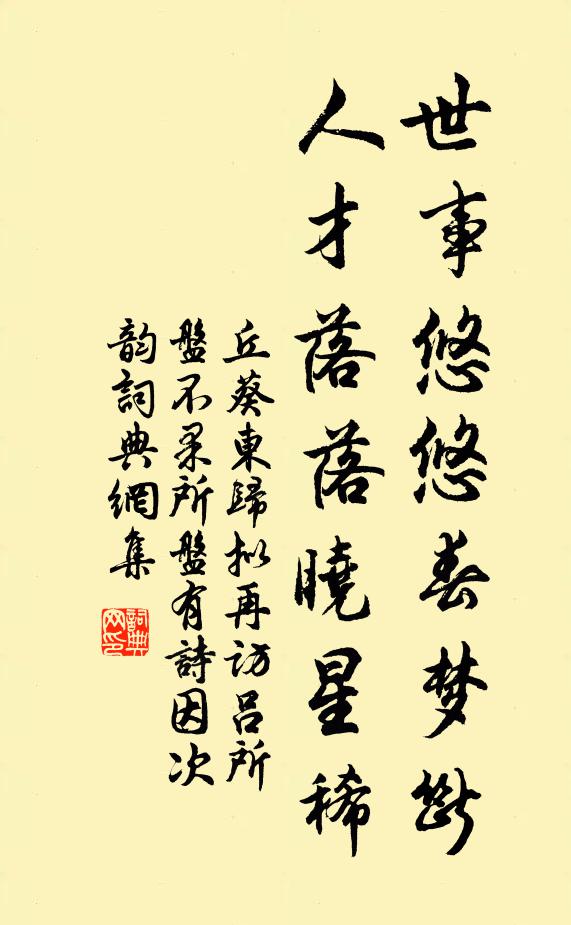 世事悠悠春梦断
人才落落曉星稀
丘葵東歸拟再访吕所
盤不果所盤有詩因次
韵詞典網集
詞典
网印